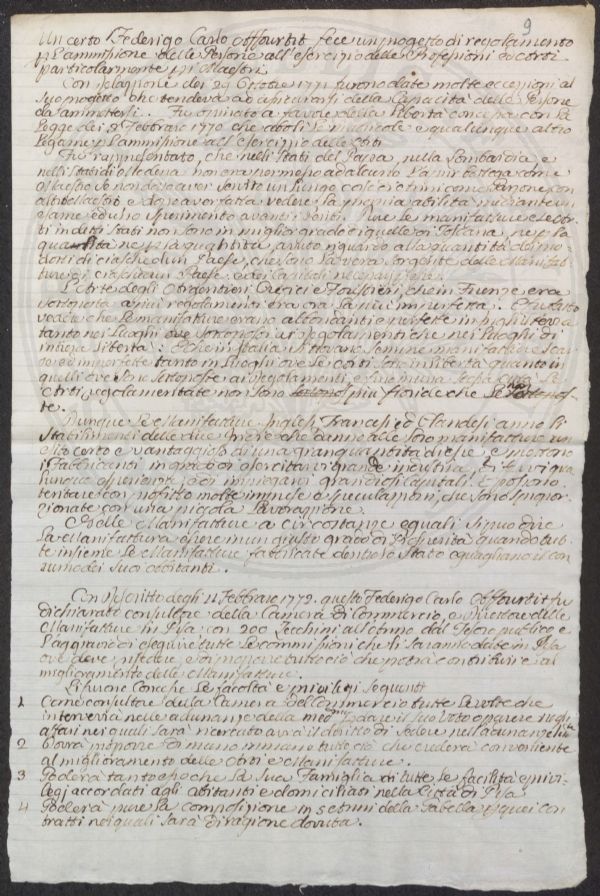 9
Un certo Federigo Carlo Offourtit fece un progetto di regolamento
p l'ammissione delle Persone all'esercizio delle Professioni ed Arti
particolarmente pi Maestri.
Con relazione dei 29 Ottobre 1771 furono date molte eccezioni al
suo progetto che tendeva ad assicurarsi della Capacità delle Persone
da ammettersi. Fu opinato a favore della libertà concessa con la
Legge dei 3 Febbraio 1770 che abolì le matricole e qualunque altro
Legame p l'ammissione all'Esercizio delle Arti
Fu rappresentato, che nelli Stati del Papa, nella Lombardia, e
nelli Stati di Modena non era permesso ad alcuno l'aprir bottega come
Maestro se non dopo aver servito un lungo corso di anni come Garzone con
altro Maestro e dopo aver fatta vedere la propria abilità mediante un
esame ed uno sperimento avanti i Periti. Pure le manifatture e le Arti
in detti Stati non sono in miglior grado di quelle di Toscana, ne p la
qualità ne p la quantità, avuto riguardo alla quantità dei pro-
dotti di ciascheduno Paese, che sono la vera sorgente delle Manifat-
ture di ciascun Paese, e dei capitali necessari p esse.
L'Arte degli Argentieri Orefici e Gioiellieri, che in Firenze era
sottoposta a più regolamenti era ora la più imperfetta. E fu fatto
vedere che le manifatture erano abbondanti e perfette in Inghilterra
tanto nei luoghi ove sottoposte ai regolamenti che nei luoghi di
intiera libertà: E che in Italia si trovano le meno manifatture scar-
se ed imperfette tanto in luoghi ove le Arti sono in libertà quanto in
quelli ove sono sottoposte ai regolamenti, e finem una stessa Città le
Arti regolamentate non sono più floride che le non sottopos-
te.
Dunque le Manifatture Inglesi Francesi ed Olandesi anno li
stabilimenti delle due Indie che danno alle loro manifatture un
esito certo e vantaggioso di una gran quantità di esse e mettono
i fabbricanti in grado di esercitare grande industria, di far qua-
lunque esperienza, e di impiegarvi grandiosi capitali. E possono
tentare con profitto molte imprese e speculazioni, che sono spropor-
zionate con una piccola lavorazione.
E nelle Manifatture a circostanze eguali si può dire
la Manifattura essere in un giusto grado di prosperità quando tut-
te insieme le Manifatture fabbricate dentro lo Stato eguagliano il con-
sumo dei suoi abitanti.
Con rescritto degli 11 Febbraio 1772. questo Federigo Carlo Offourtit fu
dichiarato consultore della Camera di Commercio, e direttore delle
Manifatture in Pisa con 200 Zecchini all'Anno dal Tesoro pubblico e
l'aggravio di eseguire tutte le commissioni che li saranno date in Pisa
ove deve risiedere, e di promovere tutto ciò che potrà contribuire al
miglioramento delle Manifatture.
Li furono concesse le facoltà e privilegi seguenti
1 Come consultore della Camera del Commercio tutte le volte che
interverrà nelle adunanze della med.ma p dare il suo voto o parere sugli
affari nei quali sarà ricercato avrà il diritto di sedere nell'adunanze
2 Dovrà proporre di mano in mano tutto ciò che crederà conveniente
al miglioramento delle Arti e Manifatture.
3 Goderà tanto esso che la sua Famiglia di tutte le facilità e privi-
legi accordati agli abitanti e domiciliati nella Città di Pisa
4 Goderà pure la composizione in settimi della Gabella p quei con-
tratti nei quali sarà di ragione dovuta.